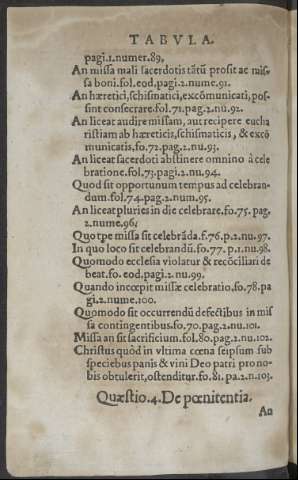 TABVLA.
pagi.1.numer.89.
An missa mali sacerdotis tātū prosit ac mis-
sa boni.fol.eod.pagi.2.nume.91.
An hæretici, schismatici, excōmunicati, pos-
sint consecrare.fol.71.pag.2.nū.92.
An liceat audire missam, aut recipere eucha
ristiam ab hæreticis, schismaticis, & excō
municatis, fo.72.pag.2.nu.93.
An liceat sacerdoti abstinere omnino à cele
bratione.fol.73.pagi.2.nu.94.
Quod sit opportunum tempus ad celebran-
dum.fol.74.pag.2.num.95.
An liceat pluries in die celebrare.fo.75.pag.
2.nume.96.
Quo tpe missa sit celebrāda.f.76.p.2.nu.97.
In quo loco sit celebrandū.fo.77.p.1.nu.98.
Quomodo ecclesia violatur & recōciliari de
beat.fo.eod.pagi.2.nu.99.
Quando incœpit missæ celebratio.fo.78.pa
gi.2.nume.100.
Quomodo sit occurrendū defectibus in mis
sa contingentibus.fo.70.pag.2.nu.101.
Missa an sit sacrificium.fol.80.pag.2.nu.102.
Christus quòd in vltima cœna seipsum sub
speciebus panis & vini Deo patri pro no-
bis obtulerit, ostenditur.fo.81.pa.2.n.103.
Quæstio.4. De pœnitentia.
An